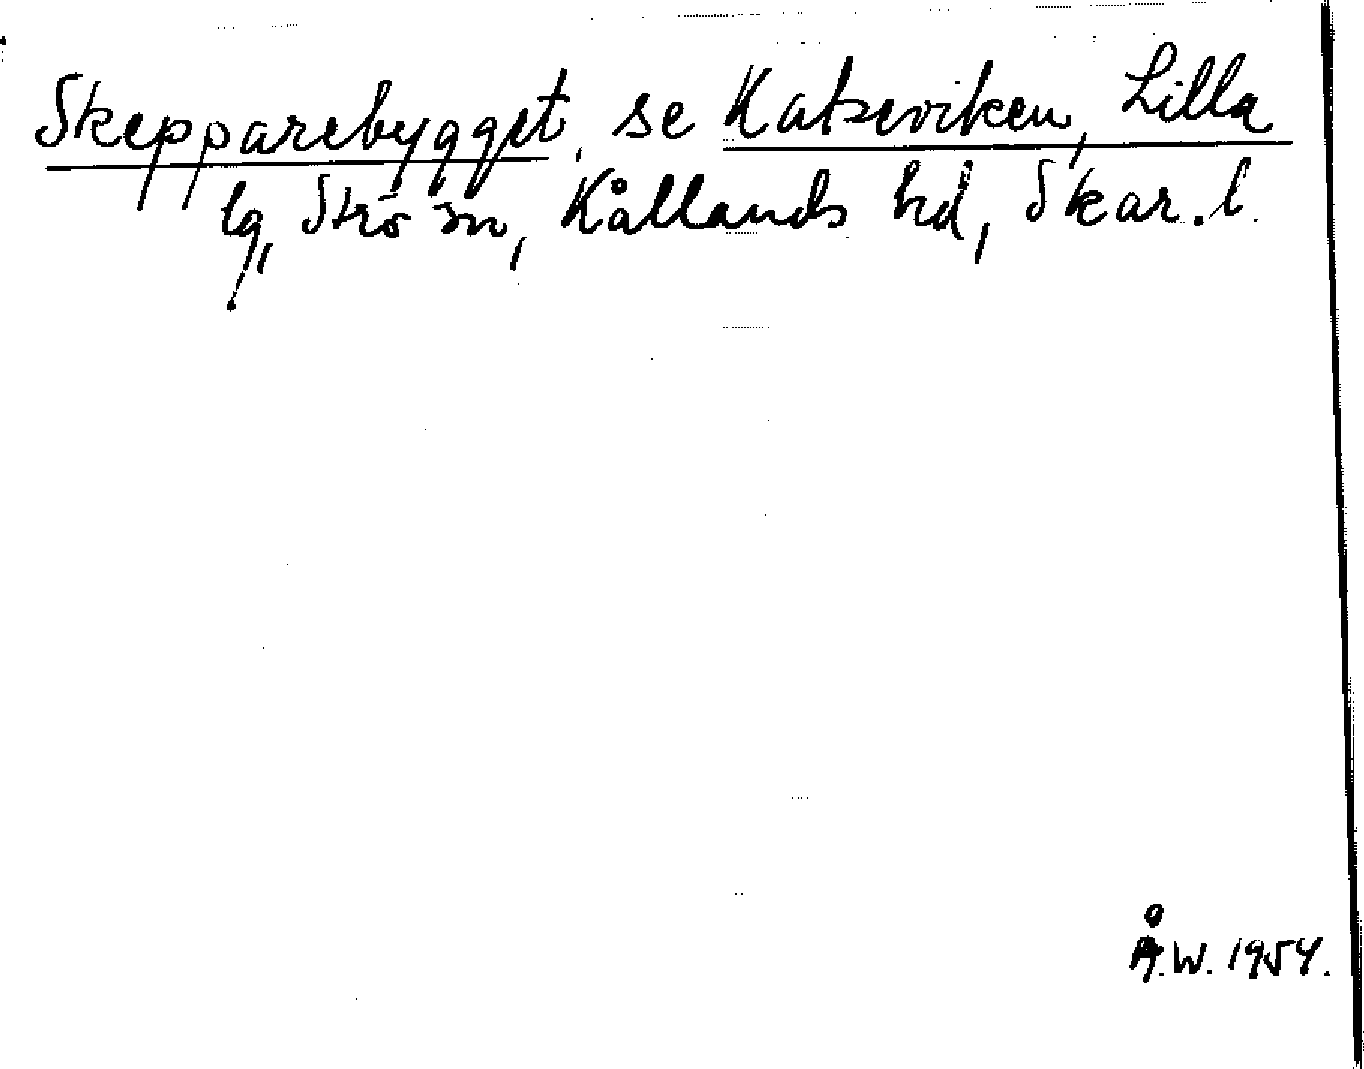 Skepparebygget, se Katseviken, Lilla
lg, Strö sn, Kållands hd, Skar. l.
Å.W. 1954.